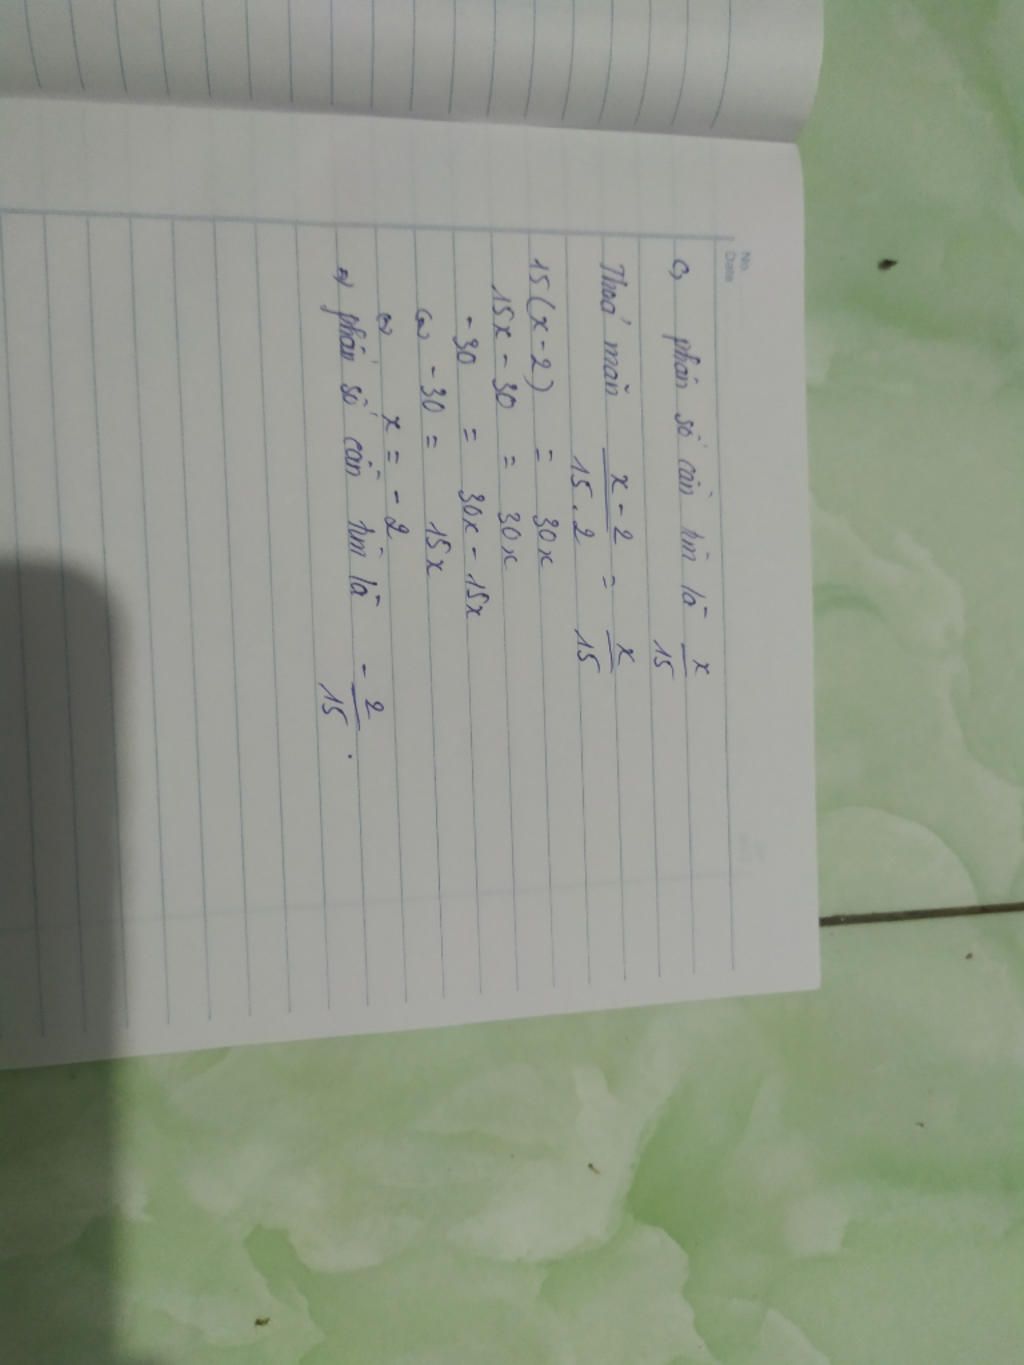 No.
Date
c, phân số cần tìm là x/15
Thoả mãn x-2/15.2 = x/15
15(x-2) = 30x
15x - 30 = 30x
-30 = 30x - 15x
⇔ -30 = 15x
⇔ x = -2
⇒ phân số cần tìm là -2/15.